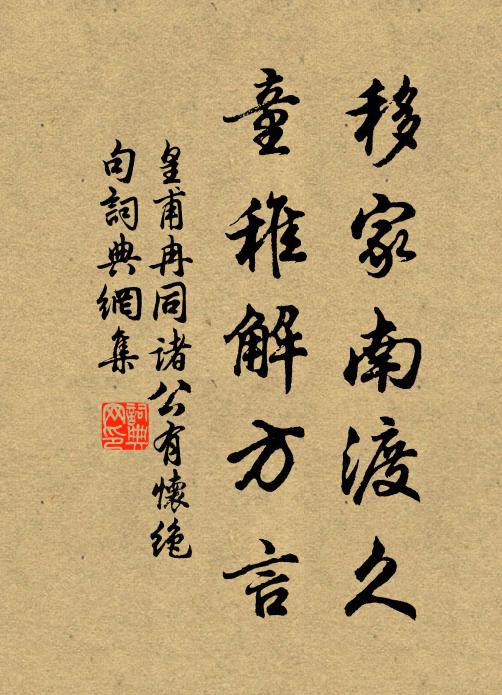 移家南渡久
童稚解方言
皇甫冉同諸公有懷絶
句詞典網集
詞典
网印